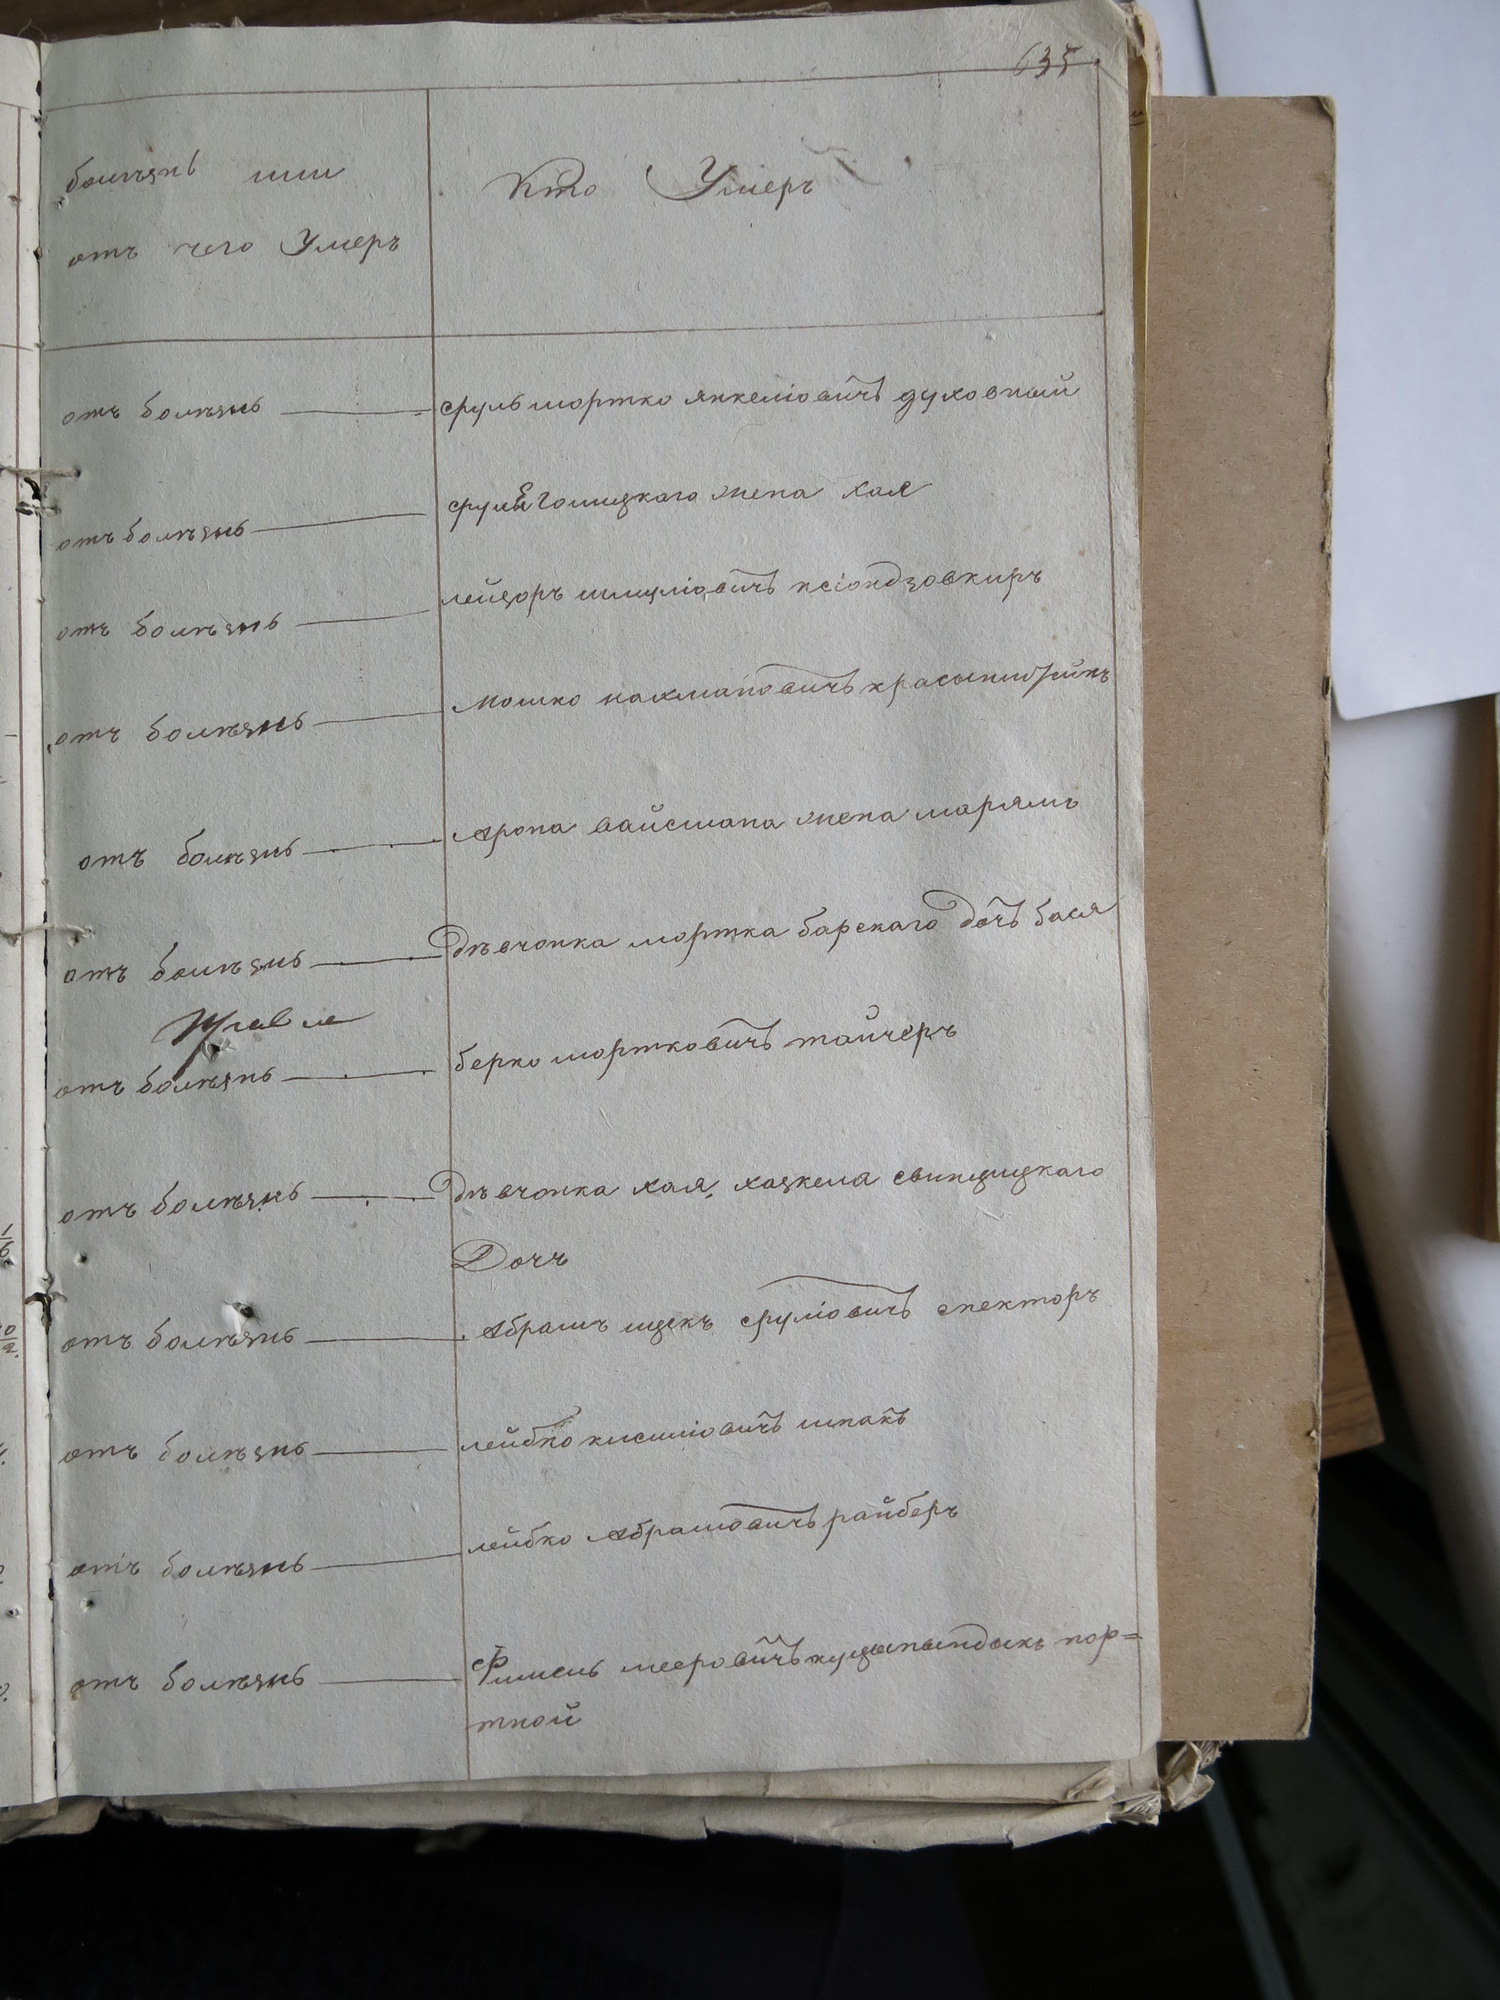 635
болѣзнь или
отъ чего Умеръ
Кто Умеръ
отъ болѣзнь сруль мортко янкеліовичъ духовный
отъ болѣзнь сруля Голицкаго жена хая
отъ болѣзнь лейзоръ шмуліовичъ ксіондзовкиръ
отъ болѣзнь мошко нахмановичъ
отъ болѣзнь Арона вайсмана жена марямъ
отъ болѣзнь Дѣвчонка мортка барскаго дочъ бася
отъ болѣзнь берко мортковичъ тайчеръ
отъ болѣзнь Дѣвчонка хая, хазкела свинцицкаго
Дочъ
отъ болѣзнь Абрамъ ицекъ сруліовичъ спекторъ
отъ болѣзнь лейбко кисиліовичъ шпакъ
отъ болѣзнь лейбко Абрамовичъ райберъ
отъ болѣзнь Фишель мееровичъ пор=
тной